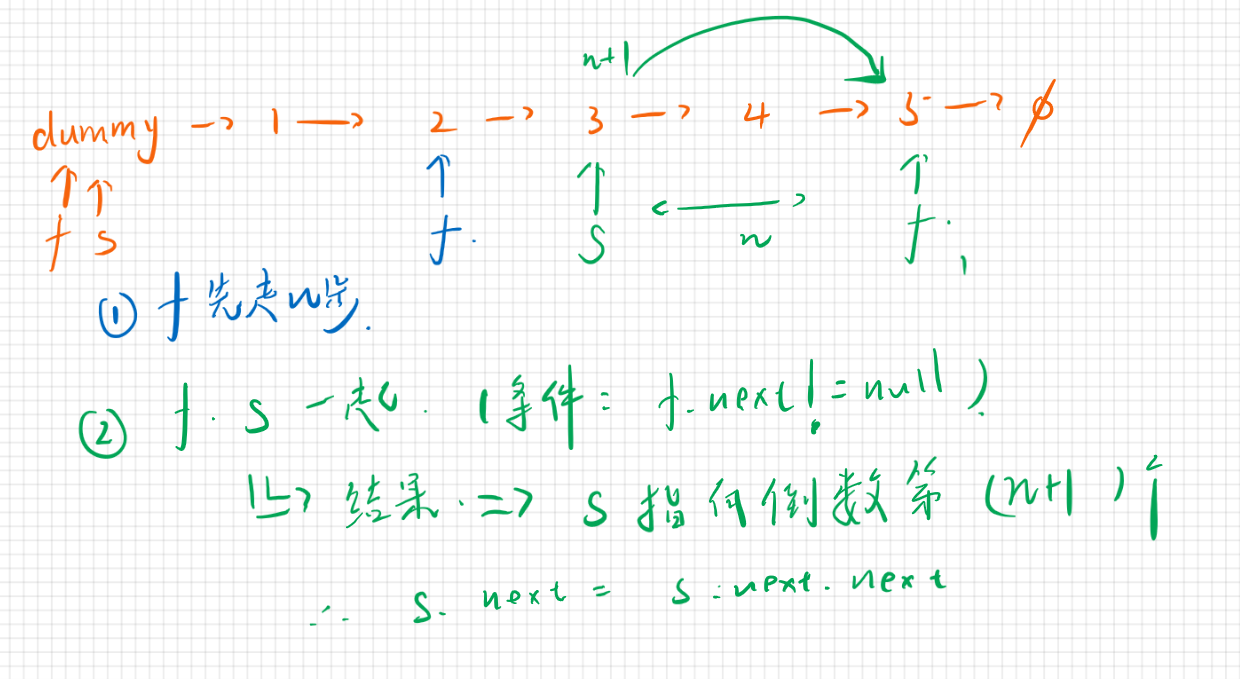 n+1
dummy → 1 → 2 → 3 → 4 → 5 → ∅
↑ ↑ ↑ ↑ ↑
f s f. S ←→ n f.
① f 先走 n 步.
② f. s 一起. (条件: f.next != null)
结果. => s 指向倒数第 (n+1) 个
∴ s.next = s.next.next